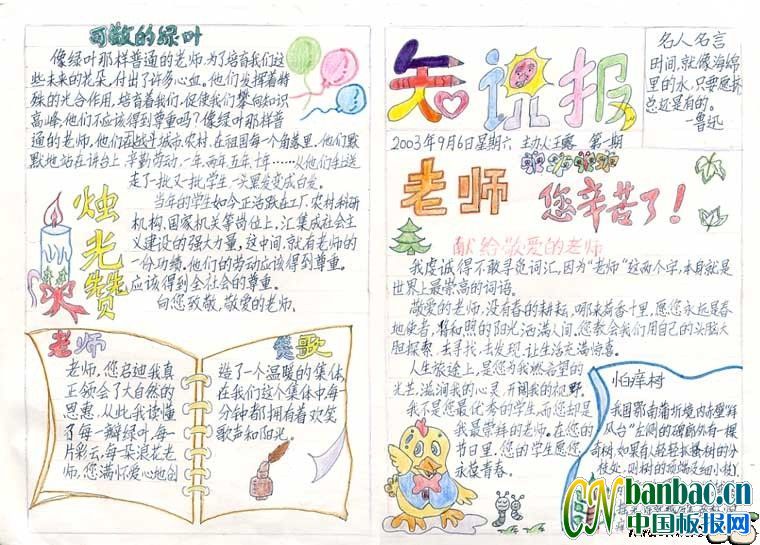 可敬的绿叶
像绿叶那样普通的老师,为了培育我们这
些未来的花朵,付出了许多心血。他们发挥着特
殊的光合作用,培育着我们,促使我们攀向知识
高峰,他们不应该得到尊重吗?像绿叶那样普
通的老师,他们在城市、农村,在祖国每一个角落里。他们默
默地站在讲台上,辛勤劳动,一年,两年,五年,十年……从他们手上送
走了一批又一批学生,一头黑发变成白发。
烛光赞
当年的学生如今正活跃在工厂、农村、科研
机构、国家机关等岗位上,汇集成社会主
义建设的强大力量,这中间,就有老师的
一份功绩。他们的劳动应该得到尊重。
应该得到全社会的尊重。
向您致敬,敬爱的老师。
老师
老师,您启迪我真
正领会了大自然的
恩惠,从此我读懂
了每一瓣绿叶,每一
片彩云,每朵浪花老
师,您满怀爱心地创
赞歌
造了一个温暖的集体,
在我们这个集体中每一
分钟都拥有着欢笑
歌声和阳光。
知识报
名人名言
时间,就像海绵
里的水,只要愿挤,
总还是有的。
—鲁迅
2003年9月6日星期六 主办人:王露 第一期
老师 您辛苦了!
献给敬爱的老师
我虔诚得不敢寻觅词汇,因为“老师”这两个字,本身就是
世界上最崇高的词语。
敬爱的老师,没有春的耕耘,哪来荷香十里,愿您永远是春
地使者,将和照的阳光洒满人间。您教会我们用自己的头脑大
胆探索,去寻找,去发现,让生活充满惊喜。
人生旅途上,是您为我燃希望的
光芒,滋润我的心灵,开阔我的视野。
我不是您最优秀的学生,而您却是
我最崇拜的老师。在您的
节日里,您的学生愿您
永葆青春。
怕痒树
我国鄂南蒲圻境内赤壁“拜
风台”左侧的碑廊旁有一棵
奇树,如果有人轻轻抓搔树的分
枝处,则树的顶端及细小枝
CN banbao.cn
中国板报网